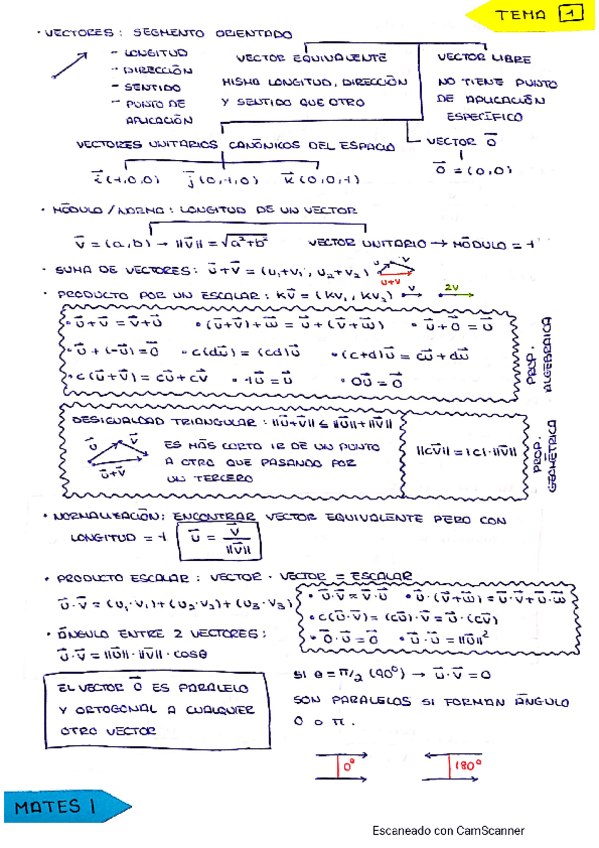 TEMA 1
· VECTORES : SEGMENTO ORIENTADO
- LONGITUD
- DIRECCIÓN
- SENTIDO
- PUNTO DE
APLICACIÓN
VECTOR EQUIVALENTE
MISMA LONGITUD, DIRECCIÓN
Y SENTIDO QUE OTRO
VECTOR LIBRE
NO TIENE PUNTO
DE APLICACIÓN
ESPECÍFICO
VECTORES UNITARIOS CANÓNICOS DEL ESPACIO
VECTOR 0⃗
i⃗ (1,0,0) j⃗ (0,1,0) k⃗ (0,0,1)
0⃗ = (0,0)
· MÓDULO / NORMA : LONGITUD DE UN VECTOR
v⃗ = (a,b) → ||v⃗|| = √a²+b² VECTOR UNITARIO → MÓDULO = 1
· SUMA DE VECTORES: u⃗+v⃗ = (u₁+v₁, u₂+v₂) u v u+v
· PRODUCTO POR UN ESCALAR : kv⃗ = (kv₁, kv₂) v 2v
· u⃗+v⃗ = v⃗+u⃗ · (u⃗+v⃗)+w⃗ = u⃗+(v⃗+w⃗) · u⃗+0⃗ = u⃗
· u⃗+(-u⃗) = 0⃗ · c(du⃗) = (cd)u⃗ · (c+d)u⃗ = cu⃗+du⃗
· c(u⃗+v⃗) = cu⃗+cv⃗ · 1u⃗ = u⃗ · 0u⃗ = 0⃗
PROP. ALGEBRAICA
DESIGUALDAD TRIANGULAR : ||u⃗+v⃗|| ≤ ||u⃗||+||v⃗||
u⃗ v⃗ u⃗+v⃗
ES MÁS CORTO IR DE UN PUNTO
A OTRO QUE PASANDO POR
UN TERCERO
||cv⃗|| = |c|·||v⃗||
PROP. GEOMÉTRICA
· NORMALIZACIÓN: ENCONTRAR VECTOR EQUIVALENTE PERO CON
LONGITUD = 1 u⃗ = v⃗ / ||v⃗||
· PRODUCTO ESCALAR : VECTOR · VECTOR = ESCALAR
u⃗·v⃗ = (u₁·v₁)+(u₂·v₂)+(u₃·v₃)
· u⃗·v⃗ = v⃗·u⃗ · u⃗·(v⃗+w⃗) = u⃗·v⃗+u⃗·w⃗
· c(u⃗·v⃗) = (cu⃗)·v⃗ = u⃗·(cv⃗)
· 0⃗·u⃗ = 0⃗ · u⃗·u⃗ = ||u⃗||²
· ÁNGULO ENTRE 2 VECTORES :
u⃗·v⃗ = ||u⃗||·||v⃗||·cosθ
EL VECTOR 0⃗ ES PARALELO
Y ORTOGONAL A CUALQUIER
OTRO VECTOR
SI θ = π/2 (90°) → u⃗·v⃗ = 0
SON PARALELOS SI FORMAN ÁNGULO
0 o π.
0° 180°
MATES I
Escaneado con CamScanner